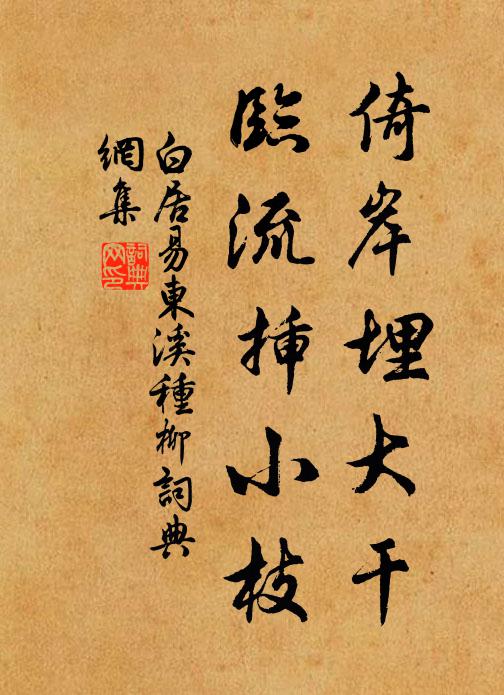 倚岸埋大干
臨流揷小枝
白居易東溪種柳詞典
網集
詞典
网印